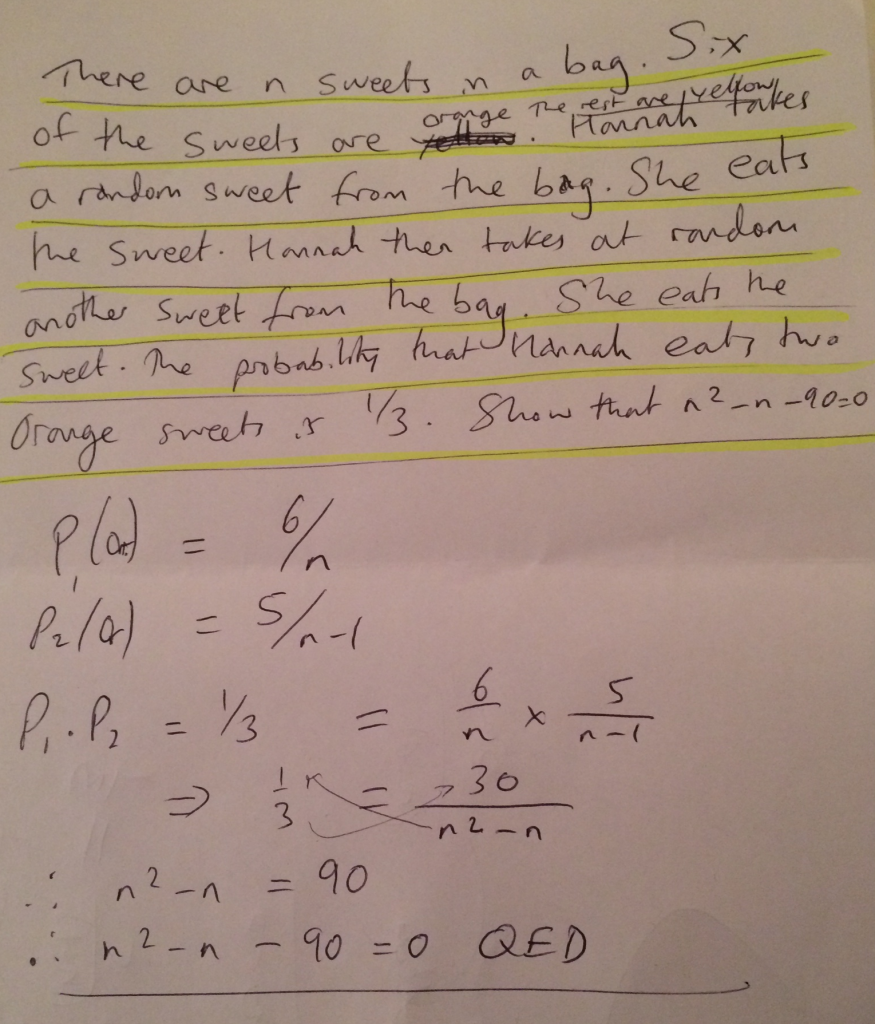 There are n sweets in a bag. Six
of the sweets are orange. The rest are yellow. Hannah takes
a random sweet from the bag. She eats
the sweet. Hannah then takes at random
another sweet from the bag. She eats the
sweet. The probability that Hannah eats two
Orange sweets is 1/3. Show that n² - n - 90 = 0
P₁(or) = 6/n
P₂(or) = 5/n-1
P₁ . P₂ = 1/3 = 6/n × 5/n-1
⇒ 1/3 = 30/n² - n
∴ n² - n = 90
∴ n² - n - 90 = 0 QED